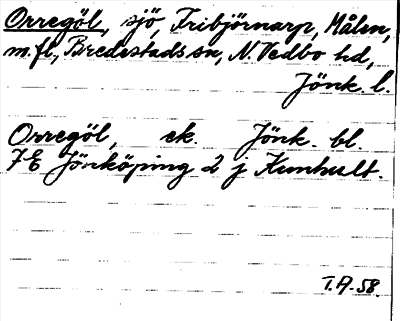 Orregöl, sjö, Fribjörnarp, Målen,
m.fl., Bredestads sn, N. Vedbo hd,
Jönk. l.
Orregöl, ek. Jönk. bl.
7E Jönköping 2 j Kumhult.
T.A. 58.